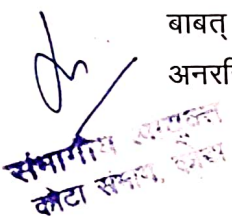 बाबत्
अनर
संभागीय आयुक्त
कोटा संभाग, कोटा